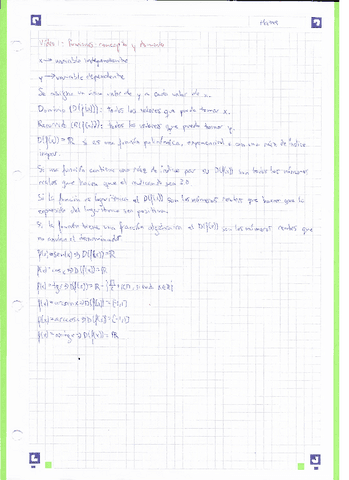 x → variable independiente
y → variable dependiente
Se asigna un único valor de y a cada valor de x.
Dominio (D(f(x))): todos los valores que puede tomar x.
Recorrido (R(f(x))): todos los valores que puede tomar y.
D(f(x)) = ℝ si es una función polinómica, exponencial o con una raíz de índice
impar.
Si una función contiene una raíz de índice par es D(f(x)) son todos los números
reales que hacen que el radicando sea ≥ 0.
Si la función es logarítmica el D(f(x)) son los números reales que hacen que la
expresión del logaritmo sea positiva.
Si la función tiene una fracción algebraica el D(f(x)) son los números reales que
no anulan el denominador.
f(x) = sen(x) ⇒ D(f(x)) = ℝ
f(x) = cos x ⇒ D(f(x)) = ℝ
f(x) = tg x ⇒ D(f(x)) = ℝ
f(x) = arcsen x ⇒ D(f(x)) = [-1,1]
f(x) = arccos x ⇒ D(f(x)) = [-1,1]
f(x) = arctg x ⇒ D(f(x)) = ℝ